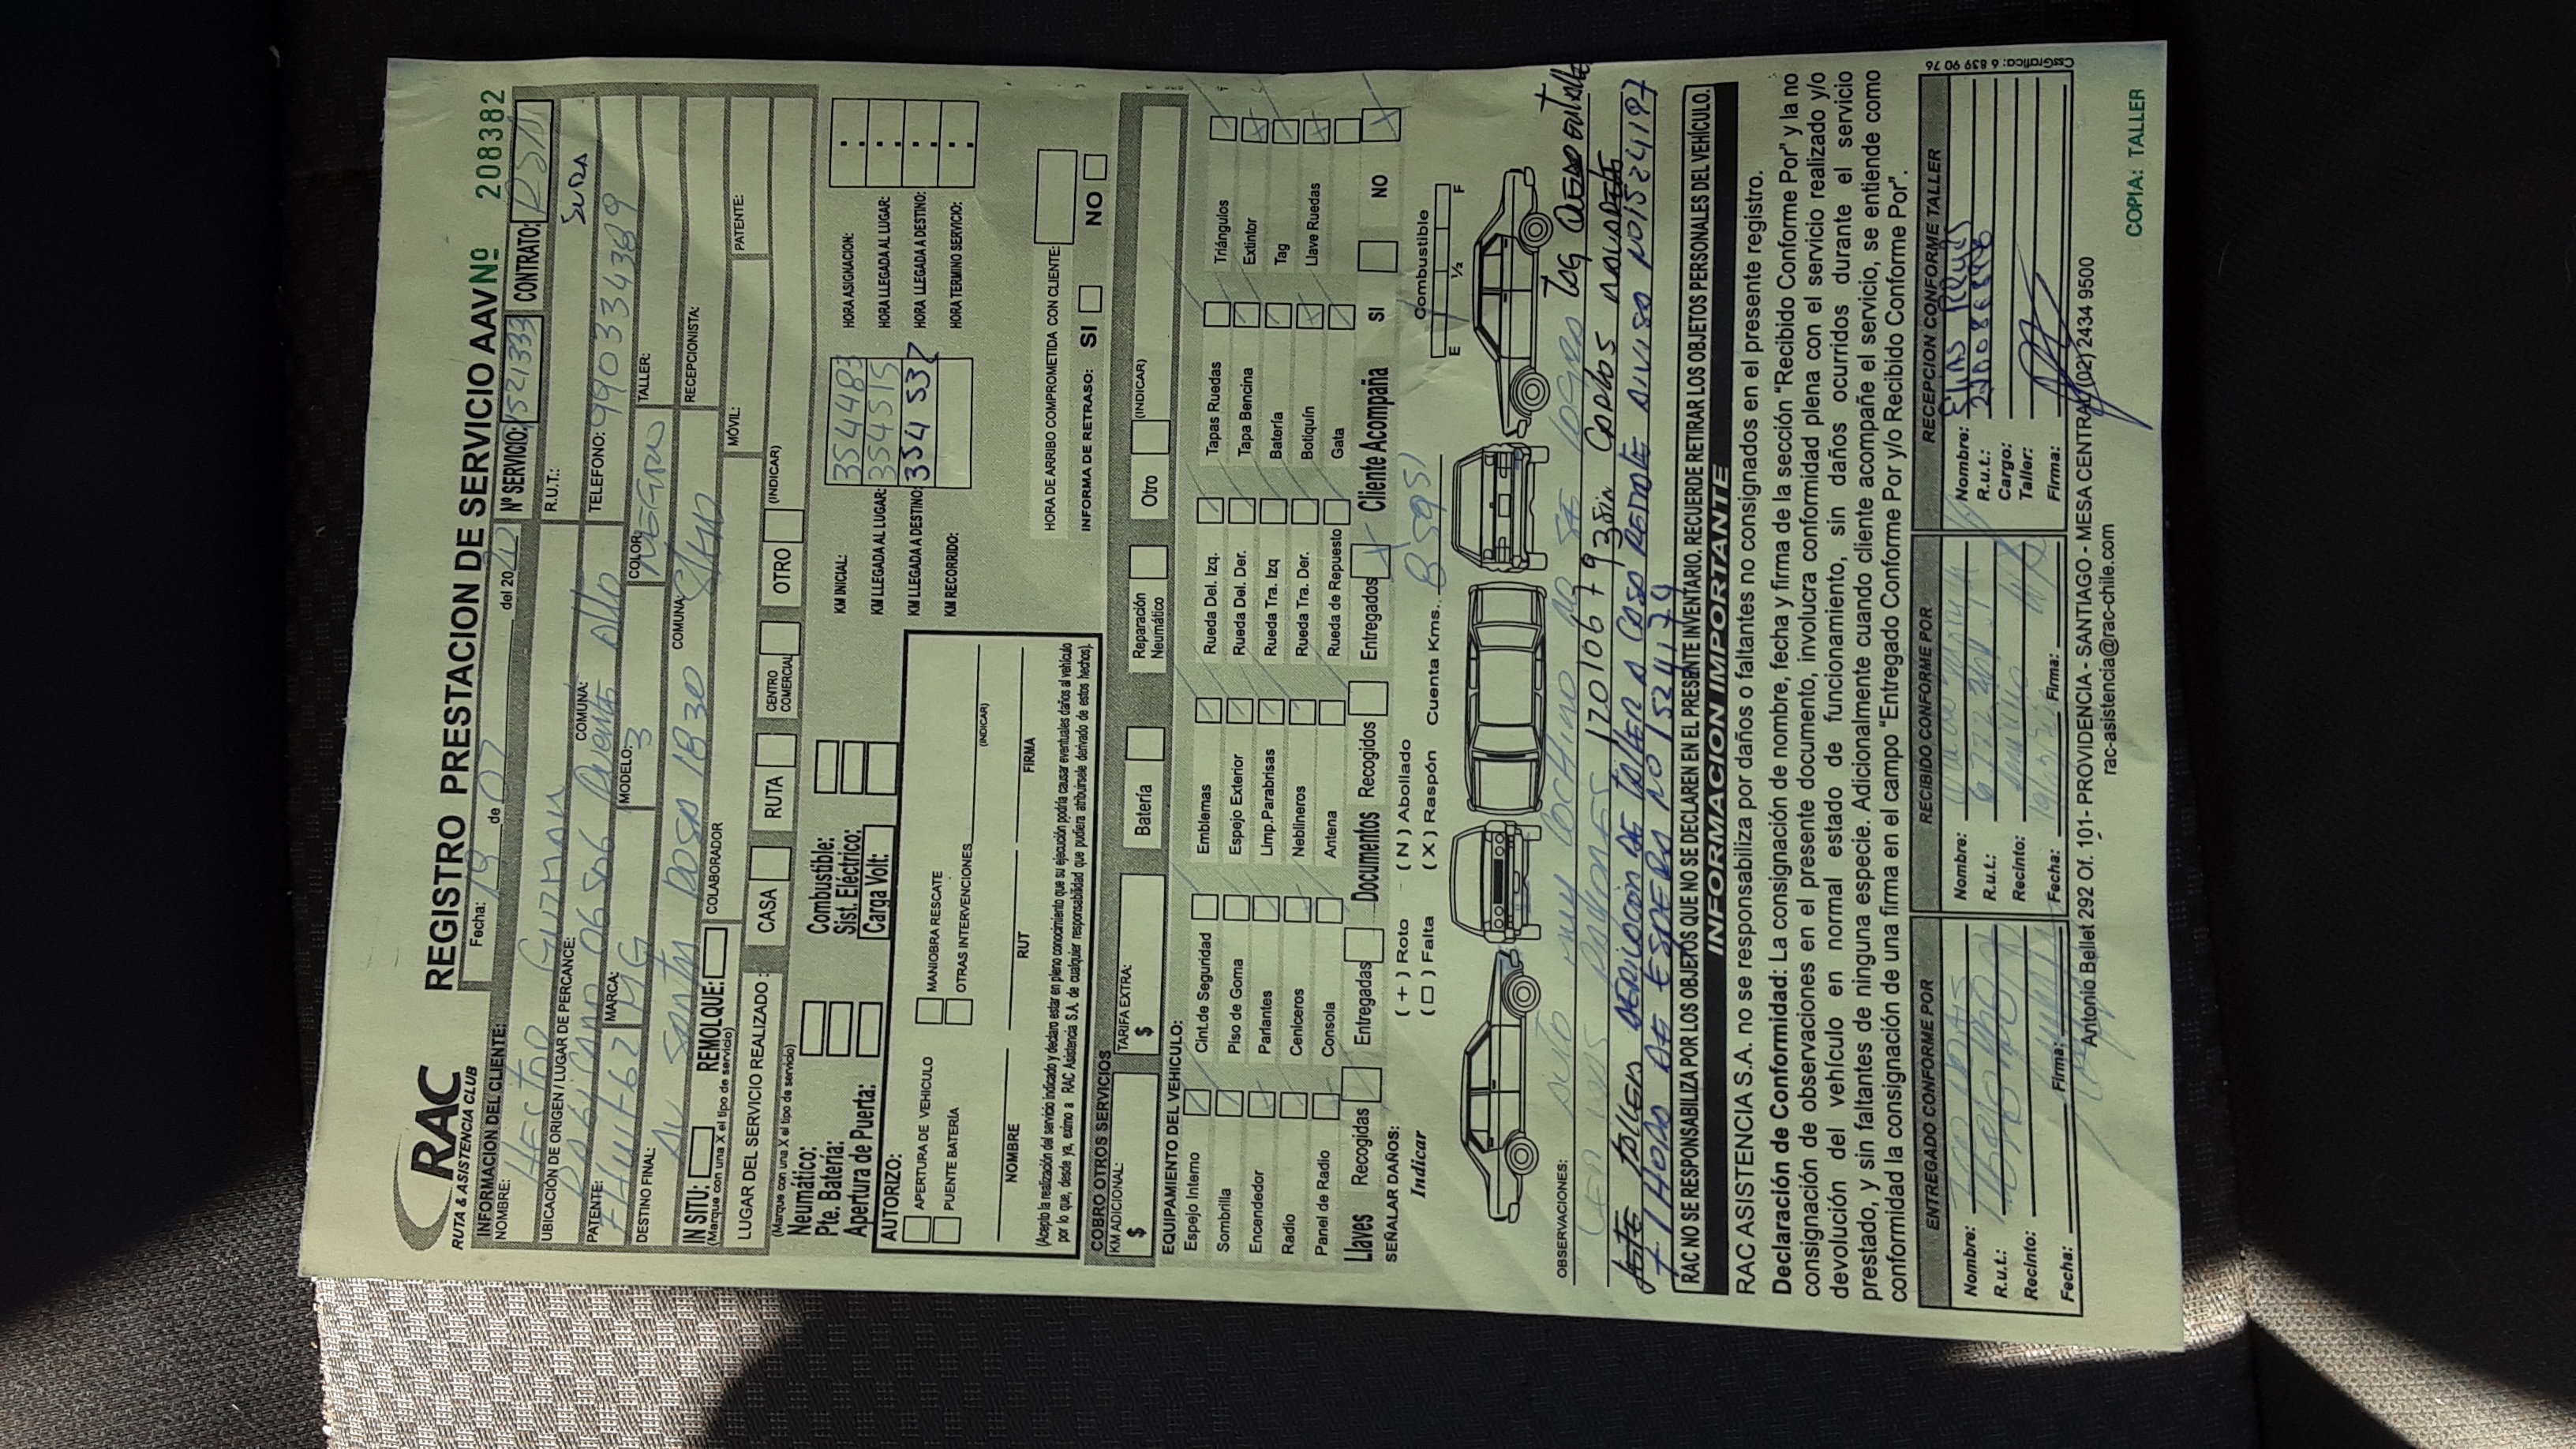 RAC
RUTA & ASISTENCIA CLUB
REGISTRO PRESTACION DE SERVICIO AAV Nº 208382
Fecha: 19 de 07 del 20
Nº SERVICIO: 1521333 CONTRATO: RSA
INFORMACION DEL CLIENTE:
NOMBRE: HECTOR GUZMAN R.U.T.: SURA
UBICACIÓN DE ORIGEN / LUGAR DE PERCANCE: COMUNA: Puente Alto TELEFONO: 990334389
PATENTE: MARCA: MG MODELO: 3 COLOR: NEGRO TALLER:
DESTINO FINAL: AV SANTA ROSA 1830 COMUNA: RECEPCIONISTA:
IN SITU: REMOLQUE: COLABORADOR MÓVIL: PATENTE:
(Marque con una X el tipo de servicio)
LUGAR DEL SERVICIO REALIZADO : CASA RUTA CENTRO COMERCIAL OTRO (INDICAR)
(Marque con una X el tipo de servicio)
Neumático: Combustible:
Pte. Batería: Sist. Eléctrico:
Apertura de Puerta: Carga Volt:
KM INICIAL: 354483 HORA ASIGNACION:
KM LLEGADA AL LUGAR: 354515 HORA LLEGADA AL LUGAR:
KM LLEGADA A DESTINO: 354 537 HORA LLEGADA A DESTINO:
KM RECORRIDO: HORA TERMINO SERVICIO:
AUTORIZO:
APERTURA DE VEHICULO MANIOBRA RESCATE
PUENTE BATERÍA OTRAS INTERVENCIONES (INDICAR)
NOMBRE RUT FIRMA
(Acepto la realización del servicio indicado y declaro estar en pleno conocimiento que su ejecución podría causar eventuales daños al vehículo
por lo que, desde ya, eximo a RAC Asistencia S.A. de cualquier responsabilidad que pudiera atribuírsele derivado de estos hechos).
HORA DE ARRIBO COMPROMETIDA CON CLIENTE:
INFORMA DE RETRASO: SI NO
COBRO OTROS SERVICIOS
KM ADICIONAL: $ TARIFA EXTRA: $ Batería Reparación Neumático Otro (INDICAR)
EQUIPAMIENTO DEL VEHICULO:
Espejo Interno Cint.de Seguridad Emblemas Rueda Del. Izq. Tapas Ruedas Triángulos
Sombrilla Piso de Goma Espejo Exterior Rueda Del. Der. Tapa Bencina Extintor
Encendedor Parlantes Limp.Parabrisas Rueda Tra. Izq Batería Tag
Radio Ceniceros Neblineros Rueda Tra. Der. Botiquín Llave Ruedas
Panel de Radio Consola Antena Rueda de Repuesto Gata
Llaves Recogidas Entregadas Documentos Recogidos Entregados Cliente Acompaña SI NO
SEÑALAR DAÑOS: ( + ) Roto ( N ) Abollado
Indicar ( □ ) Falta ( X ) Raspón Cuenta Kms.. 85951 Combustible E ½ F
OBSERVACIONES: AUTO MUY COCHINO NO SE LOGRA
170106793 sin copilos
TALLER A CASO REMOTE AVISO NO1524197
1 HORA DE ESPERA NO 1524174
RAC NO SE RESPONSABILIZA POR LOS OBJETOS QUE NO SE DECLAREN EN EL PRESENTE INVENTARIO. RECUERDE RETIRAR LOS OBJETOS PERSONALES DEL VEHÍCULO.
INFORMACION IMPORTANTE
RAC ASISTENCIA S.A. no se responsabiliza por daños o faltantes no consignados en el presente registro.
Declaración de Conformidad: La consignación de nombre, fecha y firma de la sección "Recibido Conforme Por" y la no
consignación de observaciones en el presente documento, involucra conformidad plena con el servicio realizado y/o
devolución del vehículo en normal estado de funcionamiento, sin daños ocurridos durante el servicio
prestado, y sin faltantes de ninguna especie. Adicionalmente cuando cliente acompañe el servicio, se entiende como
conformidad la consignación de una firma en el campo "Entregado Conforme Por y/o Recibido Conforme Por".
ENTREGADO CONFORME POR RECIBIDO CONFORME POR RECEPCION CONFORME TALLER
Nombre: Nombre: Nombre:
R.u.t.: R.u.t.: R.u.t.:
Recinto: Recinto: Cargo:
Taller:
Fecha: Firma: Fecha: Firma: Firma:
Antonio Bellet 292 Of. 101- PROVIDENCIA - SANTIAGO - MESA CENTRAL (02) 2434 9500
rac-asistencia@rac-chile.com
CssGrafica: 6 839 90 76
COPIA: TALLER